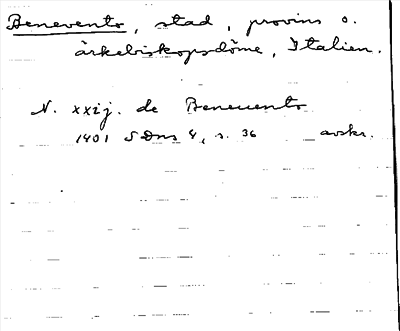 Benevento, stad, provins o.
ärkebiskopsdöme, Italien.
N. xxij. de Beneuento
1401 SDns 4, s. 36 avskr.